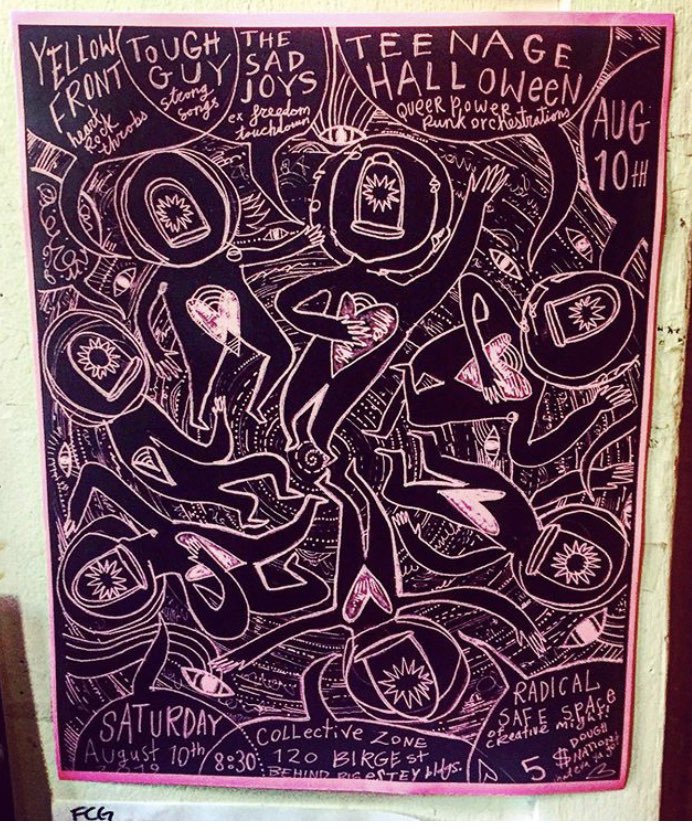 YELLOW
FRONT
heart
Rock
throbs
TOUGH
GUY
Strong
Songs
THE
SAD
JOYS
ex freedom
touchdown
TEENAGE
HALLOWEEN
QUEER POWER
PUNK ORCHESTRATIONS
AUG
10TH
SATURDAY
August 10th
8:30
COLLECTIVE ZONE
120 BIRGE st
BEHIND BIG ESTEY bldgs.
RADICAL
SAFE SPACE
of creative might!
5 $ DOUGH
NATION
FCG